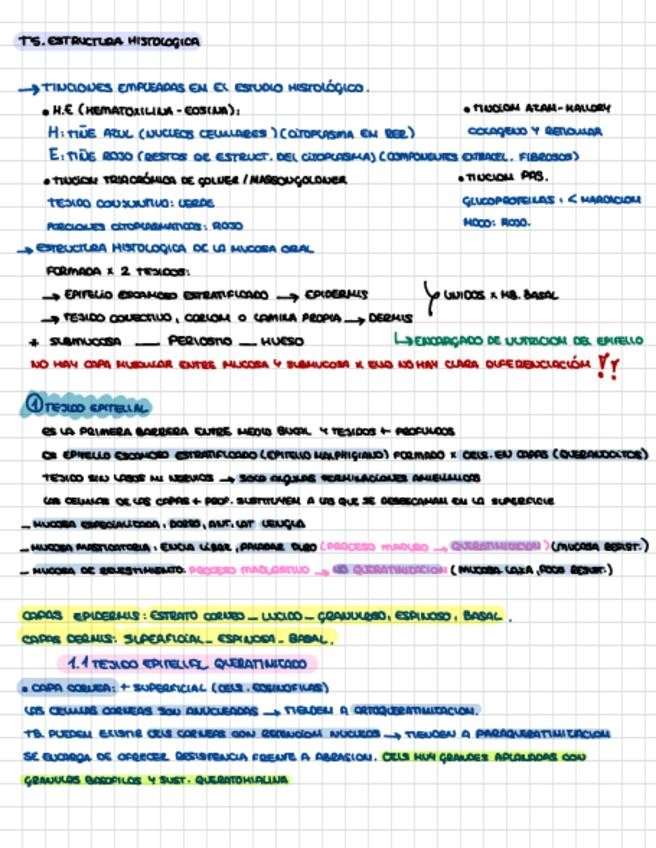 T5. ESTRUCTURA HISTOLOGICA
→ TINCIONES EMPLEADAS EN EL ESTUDIO HISTOLÓGICO.
• H.E (HEMATOXILINA - EOSINA):
• TINCION AZAN-MALLORY
H: TIÑE AZUL (NUCLEOS CELULARES) (CITOPLASMA EN RER)
COLAGENO Y RETICULAR
E: TIÑE ROJO (RESTOS DE ESTRUCT. DEL CITOPLASMA) (COMPONENTES EXTRACEL. FIBROSOS)
• TINCION TRIACRÓMICA DE GOLNER / MASSONGOLDNER
• TINCION PAS.
TEJIDO CONJUNTIVO: VERDE
GLUCOPROTEINAS : <
PORCIONES CITOPLASMATICAS: ROJO
MOCO: ROJO.
→ ESTRUCTURA HISTOLOGICA DE LA MUCOSA ORAL
FORMADA X 2 TEJIDOS:
→ EPITELIO ESCAMOSO ESTRATIFICADO → EPIDERMIS
UNIDOS X MB. BASAL
→ TEJIDO CONECTIVO, CORION O LAMINA PROPIA → DERMIS
* SUBMUCOSA — PERIOSTIO — HUESO
↳ ENCARGADO DE NUTRICION DEL EPITELIO
NO HAY CAPA MUSCULAR ENTRE MUCOSA Y SUBMUCOSA X ELLO NO HAY CLARA DIFERENCIACIÓN !!
① TEJIDO EPITELIAL
ES LA PRIMERA BARRERA ENTRE MEDIO BUCAL Y TEJIDOS + PROFUNDOS
ES EPITELIO ESCAMOSO ESTRATIFICADO (EPITELIO MALPHIGIANO) FORMADO X CELS. EN CAPAS (QUERANOCITOS)
TEJIDO SIN VASOS NI NERVIOS → SOLO ALGUNAS TERMINACIONES AMIELINICAS
LAS CELULAS DE LAS CAPAS + PROF. SUSTITUYEN A LAS QUE SE DESESCAMAN EN LA SUPERFICIE
– MUCOSA ESPECIALIZADA: DORSO, ANT, LAT LENGUA
– MUCOSA MASTICATORIA: ENCIA LIBRE, PALADAR DURO (PROCESO MADURO → QUERATINIZACION) (MUCOSA RESIST.)
– MUCOSA DE REVESTIMIENTO: PROCESO MADURATIVO → NO QUERATINIZACION (MUCOSA LAXA, POCO RESIST.)
CAPAS EPIDERMIS: ESTRATO CORNEO – LUCIDO – GRANULOSO, ESPINOSO, BASAL.
CAPAS DERMIS: SUPERFICIAL – ESPINOSA – BASAL.
1.1 TEJIDO EPITELIAL QUERATINIZADO
• CAPA CORNEA: + SUPERFICIAL (CELS. EOSINOFILAS)
LAS CELULAS CORNEAS SON ANUCLEADAS → TIENDEN A ORTOQUERATINIZACION.
TB. PUEDEN EXISTIR CELS CORNEAS CON RETENCION NUCLEOS → TIENDEN A PARAQUERATINIZACION
SE ENCARGA DE OFRECER RESISTENCIA FRENTE A ABRASION. CELS MUY GRANDES APLANADAS CON
GRANULOS BASOFILOS Y SUST. QUERATOHIALINA